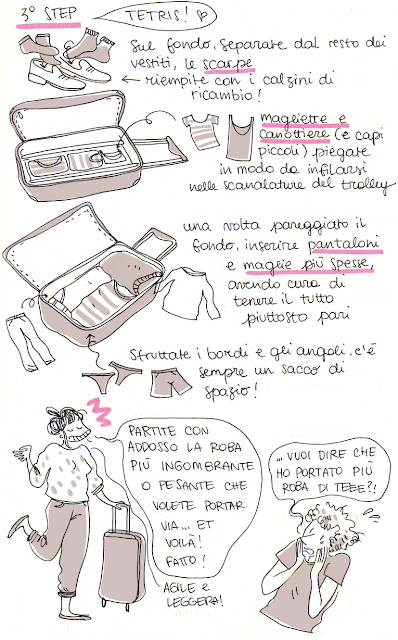 3° STEP
TETRIS! ♡
Sul fondo, separate dal resto dei
vestiti, le scarpe
← riempite con i calzini di
ricambio!
magliette e
canottiere (e capi
piccoli) piegate
in modo da infilarsi
nelle scanalature del trolley
una volta pareggiato il
fondo, inserire pantaloni
e maglie più spesse,
avendo cura di
tenere il tutto
piuttosto pari
Sfruttate i bordi e gli angoli, c'è
sempre un sacco di
spazio!
PARTITE CON
ADDOSSO LA ROBA
PIÙ INGOMBRANTE
O PESANTE CHE
VOLETE PORTAR
VIA... ET
VOILÀ!
FATTO!
AGILE e
LEGGERA!
... VUOI DIRE CHE
HO PORTATO PIÙ
ROBA DI TEEE?!